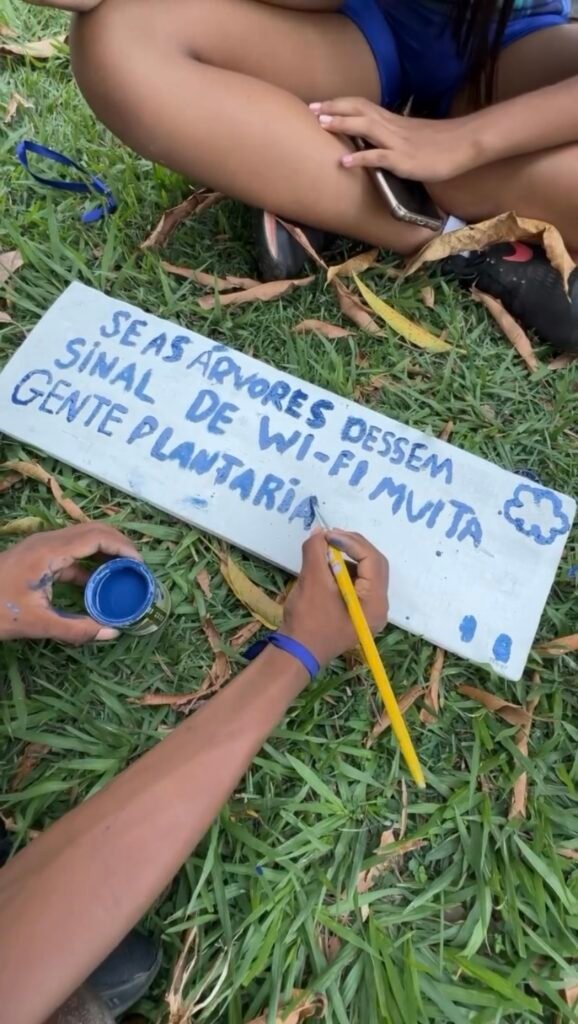 SE AS ÁRVORES DESSEM
SINAL DE WI-FI MUITA
GENTE PLANTARIA